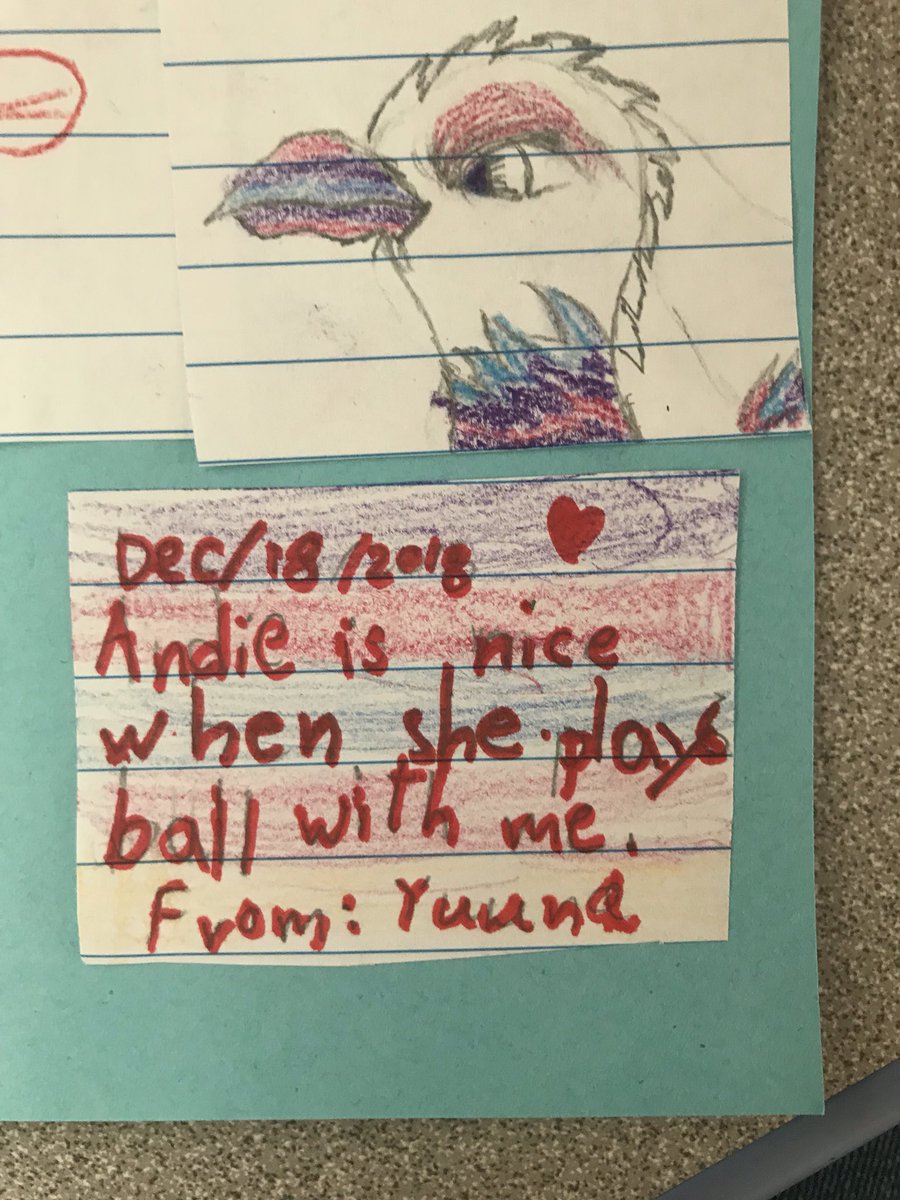 Dec/18/2018
Andie is nice
when she plays
ball with me.
From: Yuuna